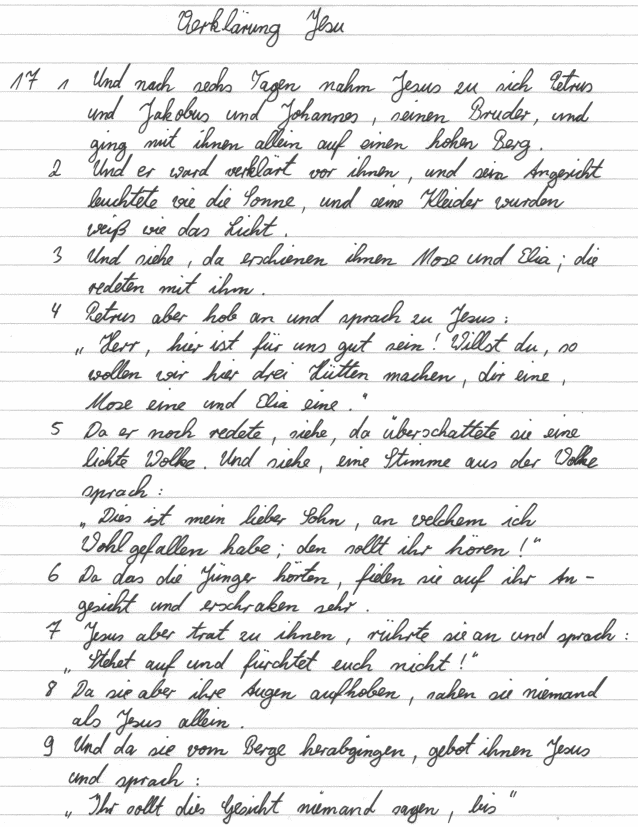 Verklärung Jesu
17 1 Und nach sechs Tagen nahm Jesus zu sich Petrus
und Jakobus und Johannes, seinen Bruder, und
ging mit ihnen allein auf einen hohen Berg.
2 Und er ward verklärt vor ihnen, und sein Angesicht
leuchtete wie die Sonne, und seine Kleider wurden
weiß wie das Licht.
3 Und siehe, da erschienen ihnen Mose und Elia; die
redeten mit ihm.
4 Petrus aber hob an und sprach zu Jesus:
„Herr, hier ist für uns gut sein! Willst du, so
wollen wir hier drei Hütten machen, dir eine,
Mose eine und Elia eine."
5 Da er noch redete, siehe, da überschattete sie eine
lichte Wolke. Und siehe, eine Stimme aus der Wolke
sprach:
„Dies ist mein lieber Sohn, an welchem ich
Wohlgefallen habe; den sollt ihr hören!"
6 Da das die Jünger hörten, fielen sie auf ihr An-
gesicht und erschraken sehr.
7 Jesus aber trat zu ihnen, rührte sie an und sprach:
„Stehet auf und fürchtet euch nicht!"
8 Da sie aber ihre Augen aufhoben, sahen sie niemand
als Jesus allein.
9 Und da sie vom Berge herabgingen, gebot ihnen Jesus
und sprach:
„Ihr sollt dies Gesicht niemand sagen, bis"